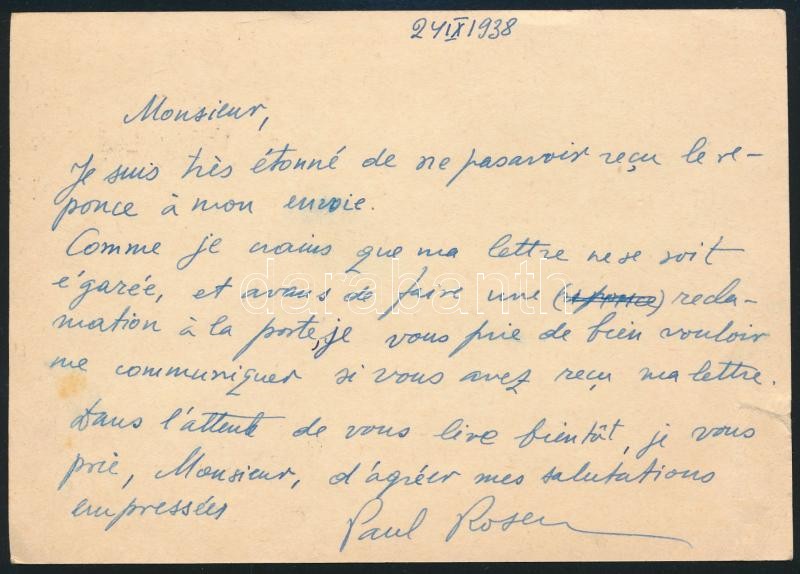 24IX1938
Monsieur,
Je suis très étonné de ne pas avoir reçu le re-
ponce à mon envoie.
Comme je crains que ma lettre ne se soit
égarée, et avans de faire une () recla-
mation à la porte, je vous prie de bien vouloir
me communiquer si vous avez reçu ma lettre.
Dans l'attente de vous lire bientôt, je vous
prie, Monsieur, d'agréer mes salutations
empressées
Paul Rosen
darabanth